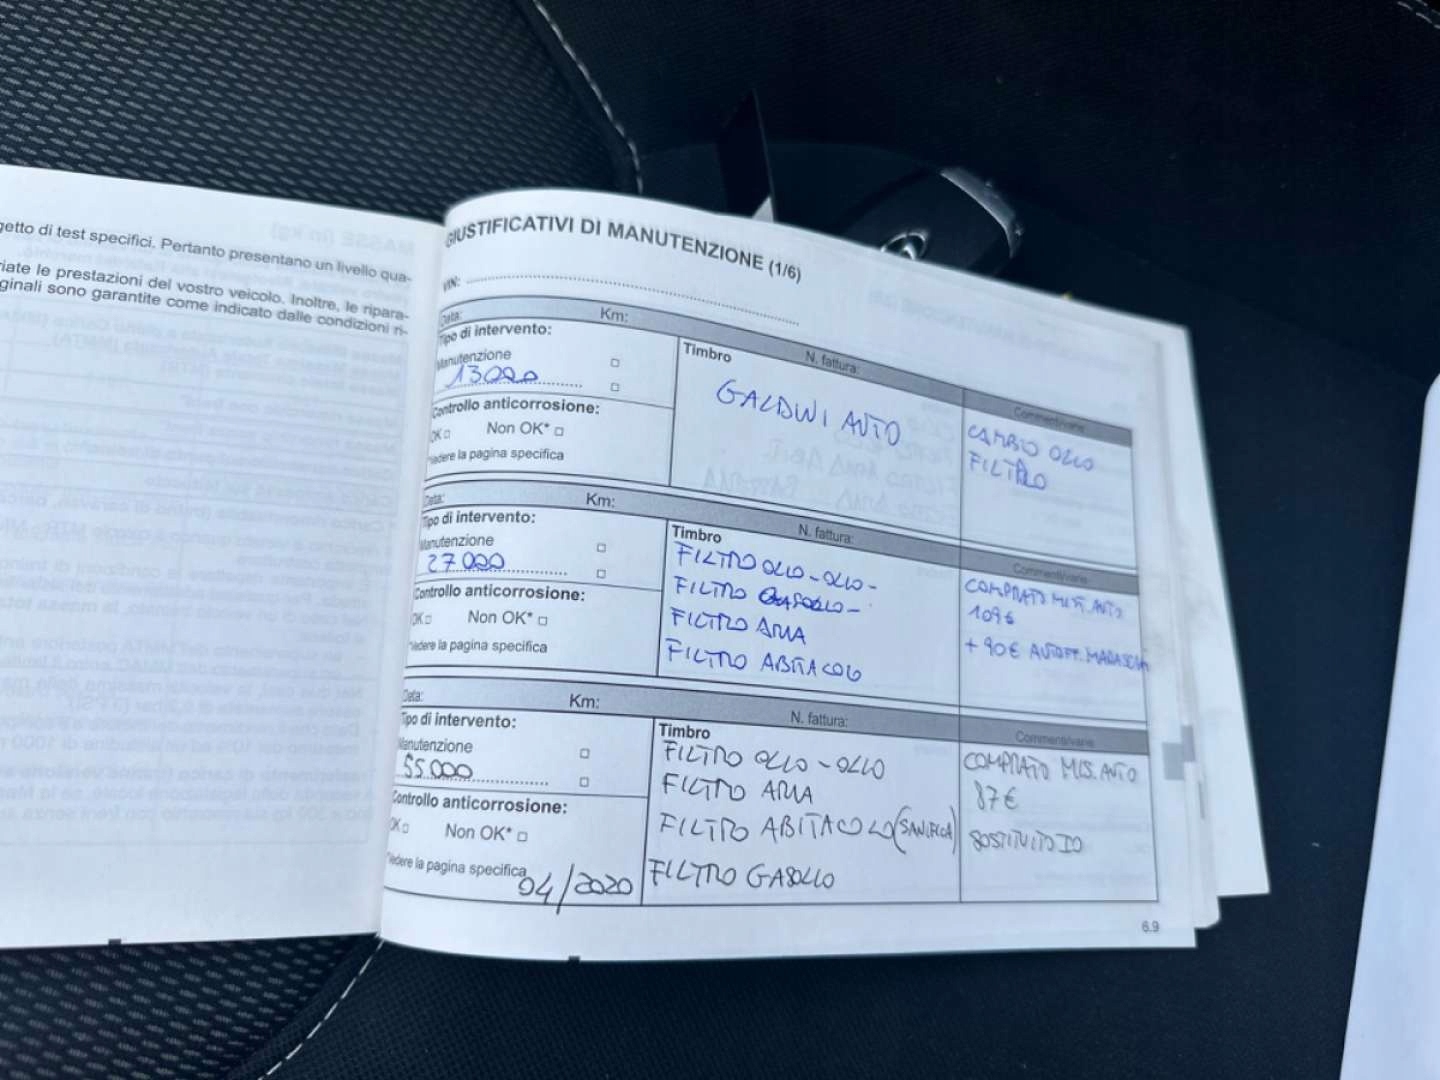 getto di test specifici. Pertanto presentano un livello qua-
riate le prestazioni del vostro veicolo. Inoltre, le ripara-
ginali sono garantite come indicato dalle condizioni ri-
GIUSTIFICATIVI DI MANUTENZIONE (1/6)
VIN:
Data: Km: N. fattura:
Tipo di intervento:
Manutenzione
13000
Controllo anticorrosione:
OK Non OK*
Vedere la pagina specifica
Timbro
GALDINI AUTO
Commenti/varie
CAMBIO OLIO
FILTRO
Data: Km: N. fattura:
Tipo di intervento:
Manutenzione
27000
Controllo anticorrosione:
OK Non OK*
Vedere la pagina specifica
Timbro
FILTRO OLIO - OLIO -
FILTRO GASOLIO -
FILTRO ARIA
FILTRO ABITACOLO
Commenti/varie
COMPRATO MIS. AUTO
109€
+ 90€
Data: Km: N. fattura:
Tipo di intervento:
Manutenzione
55000
Controllo anticorrosione:
OK Non OK*
Vedere la pagina specifica
04/2020
Timbro
FILTRO OLIO - OLIO
FILTRO ARIA
FILTRO ABITACOLO (SANIFICA)
FILTRO GASOLIO
Commenti/varie
COMPRATO MIS. AUTO
87€
SOSTITUITO IO
6.9